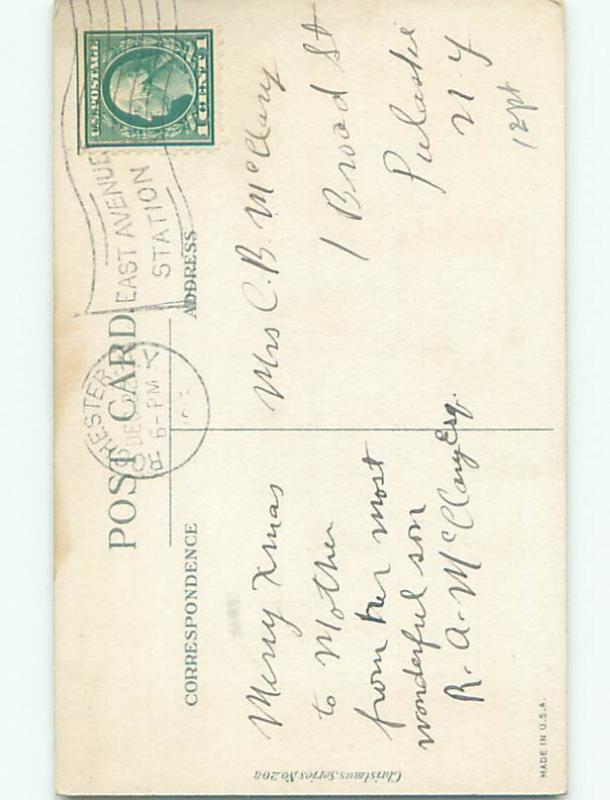 POST CARD
CORRESPONDENCE
ADDRESS
U.S. POSTAGE
1 CENT 1
ROCHESTER
DEC
6-PM
N.Y.
EAST AVENUE
STATION
Merry Xmas
to Mother
from her most
wonderful son
R. A. McClary Esq.
Mrs C. B. McClary
1 Broad St
Pulaski
N. Y
12pt
Christmas Series No. 208
MADE IN U.S.A.